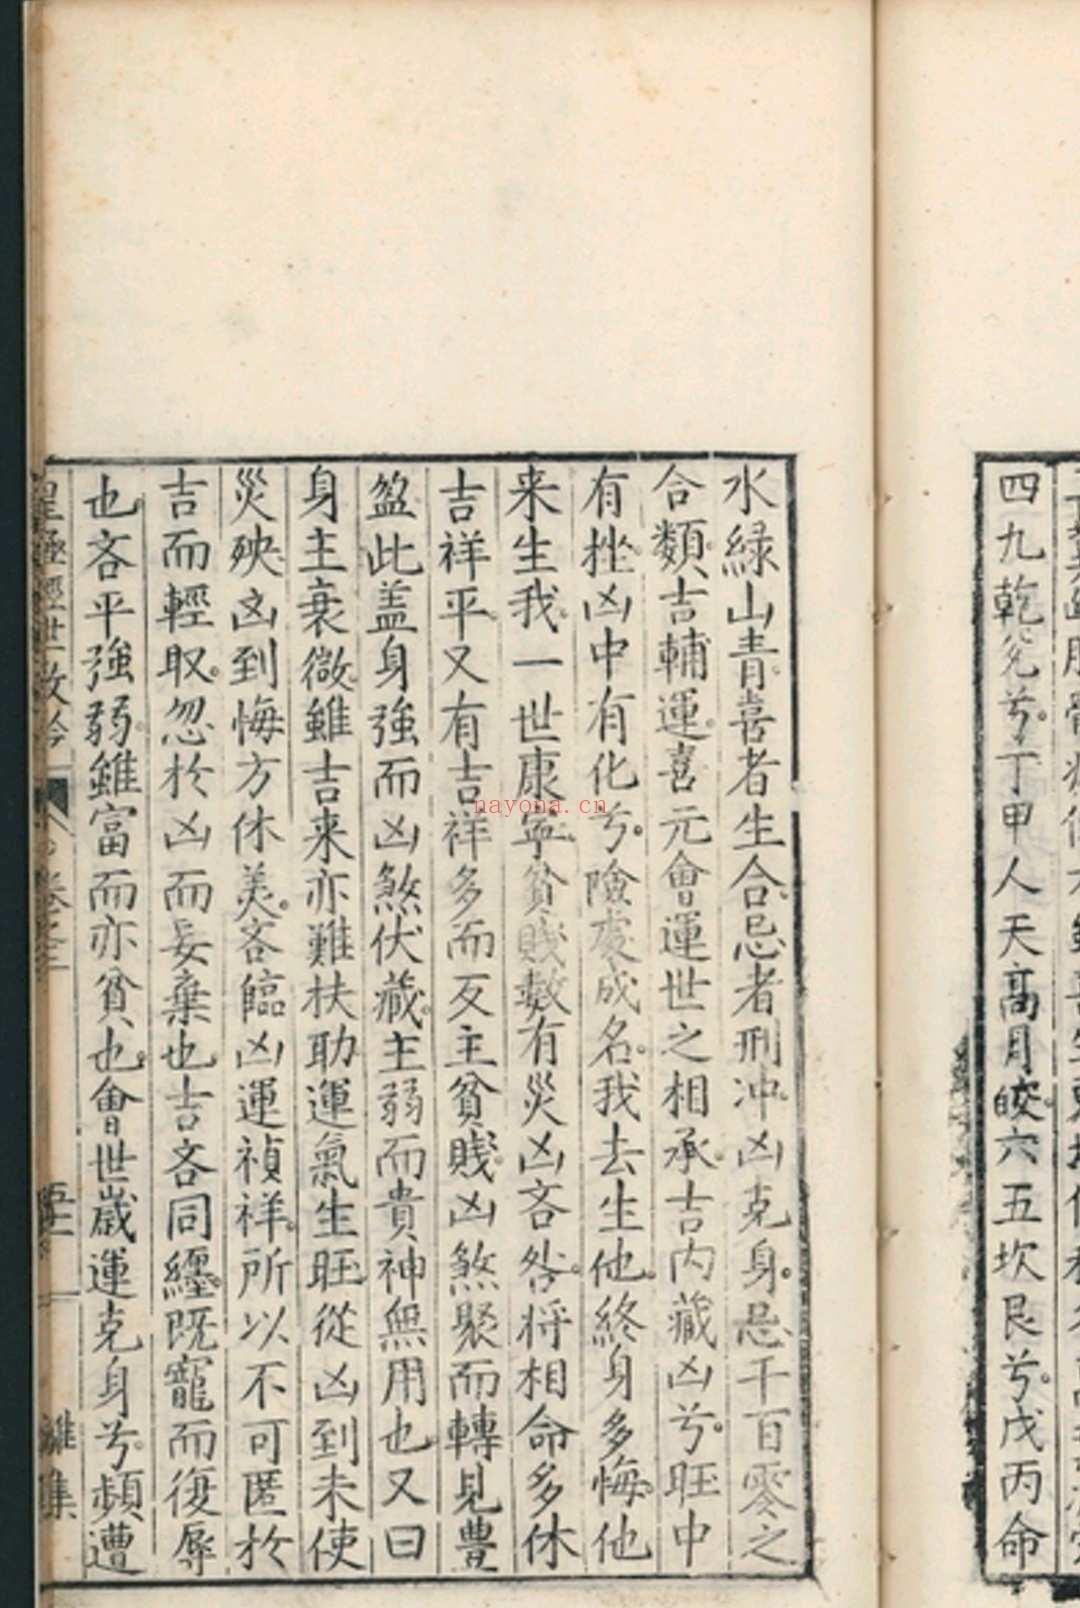 四九乾兊兮丁甲人天高月皎六五坎艮兮戊丙命
水緑山青喜者生合忌者刑冲凶克身忌千百零之
合類吉輔運喜元會運世之相承吉内藏凶兮旺中
有挫凶中有化兮險處成名我去生他終身多悔他
来生我一世康寧貧賤數有災凶吝咎将相命多休
吉祥平又有吉祥多而反主貧賤凶煞聚而轉見豊
盈此盖身強而凶煞伏藏主弱而貴神無用也又曰
身主衰微雖吉来亦難扶助運氣生旺從凶到未使
災殃凶到悔方休美吝臨凶運禎祥所以不可匿於
吉而輕取忽於凶而妄棄也吉吝同纏既寵而復辱
也吝平強弱雖富而亦貧也會世歲運克身兮頻遭
皇極經世
卷之三
集
nayona.cn